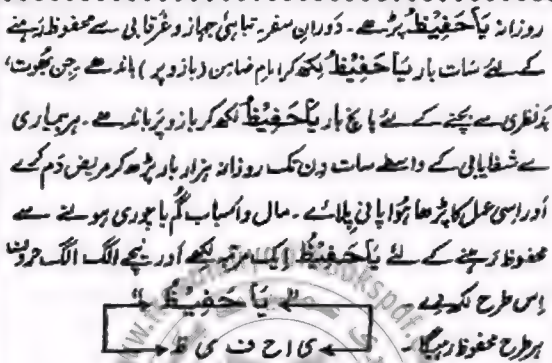 روزانہ یَا حَفِیْظُ پڑھے۔ دَورانِ سفر۔ تباہیٔ جہاز و غرقابی سے محفوظ رہنے
کے لئے سَات بار یَا حَفِیْظُ لکھ کر امام ضامن (بازو پر) باندھے جن بھُوت،
بَدنظری سے بچنے کے لئے پانچ بار یَا حَفِیْظُ لکھ کر بازو پر باندھے۔ ہر بیماری
سے شفایابی کے واسطے سات دِن تک روزانہ ہزار بار پڑھ کر مریض دَم کرے
اَور اِسی عمل کا پڑھا ہُوا پانی پلائے۔ مال و اَسباب گُم یا چوری ہونے سے
محفوظ رَہنے کے لئے یَا حَفِیْظُ اِیک مرتبہ لکھے اَور نیچے الگ الگ حروف
اِس طرح لکھدے یَا حَفِیْظُ
ہر طرح محفوظ رہیگا۔ ی ا ح ف ی ظ